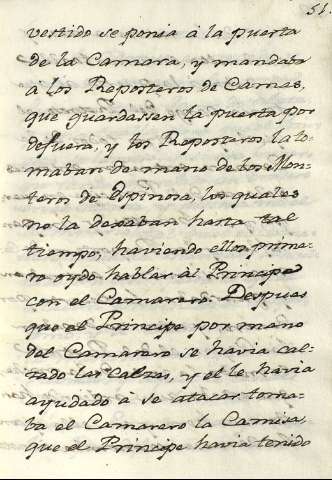 51.
vestido se ponia à la puerta
de la Camara, y mandaba
à los Reposteros de Camas,
que guardassen la puerta por
defuera, y los Reposteros, la to-
maban de mano de los Mon-
teros de Espinosa, los quales
no la dexaban hasta tal
tiempo, haviendo ellos prime-
ro oydo hablar àl Principe
con el Camarero. Despues
que el Principe por mano
del Camarero se havia cal-
zado las calzas, y el le havia
ayudado à se atacar toma-
ba el Camarero la Camisa,
que el Principe havia tenido